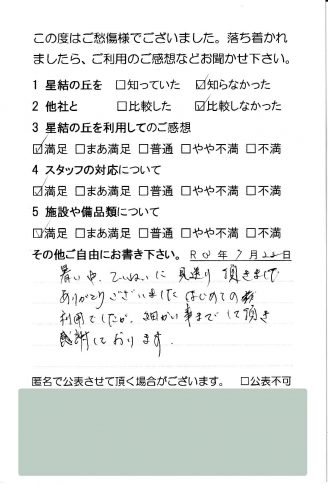 この度はご愁傷様でございました。落ち着かれ
ましたら、ご利用のご感想などお聞かせ下さい。
1 星結の丘を □知っていた ☑知らなかった
2 他社と □比較した ☑比較しなかった
3 星結の丘を利用してのご感想
☑満足 □まあ満足 □普通 □やや不満 □不満
4 スタッフの対応について
☑満足 □まあ満足 □普通 □やや不満 □不満
5 施設や備品類について
☑満足 □まあ満足 □普通 □やや不満 □不満
その他ご自由にお書き下さい。 R 年 7月22日
暑い中、ていねいに見送り頂きまして
ありがとうございました はじめての
利用でしたが、細かい事までして頂き
感謝しております。
匿名で公表させて頂く場合がございます。 □公表不可